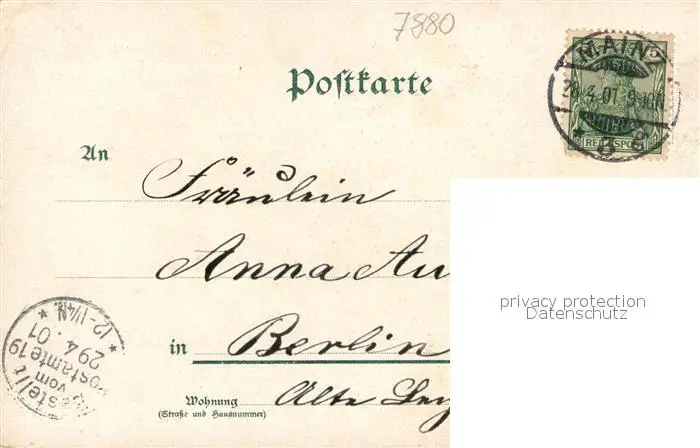 7880
MAINZ
28.4.01.9-10N
REICHSPOST
5
Postkarte
An
Fräulein
Anna Au
in Berlin
Wohnung Alte
(Straße und Hausnummer)
Bestellt
vom
Postamte 19
29.4.01
12-1¼N.
privacy protection
Datenschutz